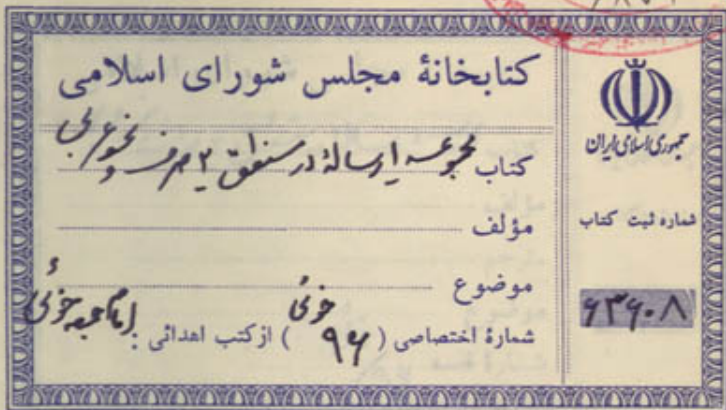 کتابخانهٔ مجلس شورای اسلامی
کتاب مجموعه رساله در منطق ۲ صرف و نحو عربی
مؤلف
موضوع
شمارهٔ اختصاصی ( ۹۶ خوئی ) از کتب اهدائی : امام جمعه خوئی
جمهوری اسلامی ایران
شماره ثبت کتاب
۶۳۶۰۸